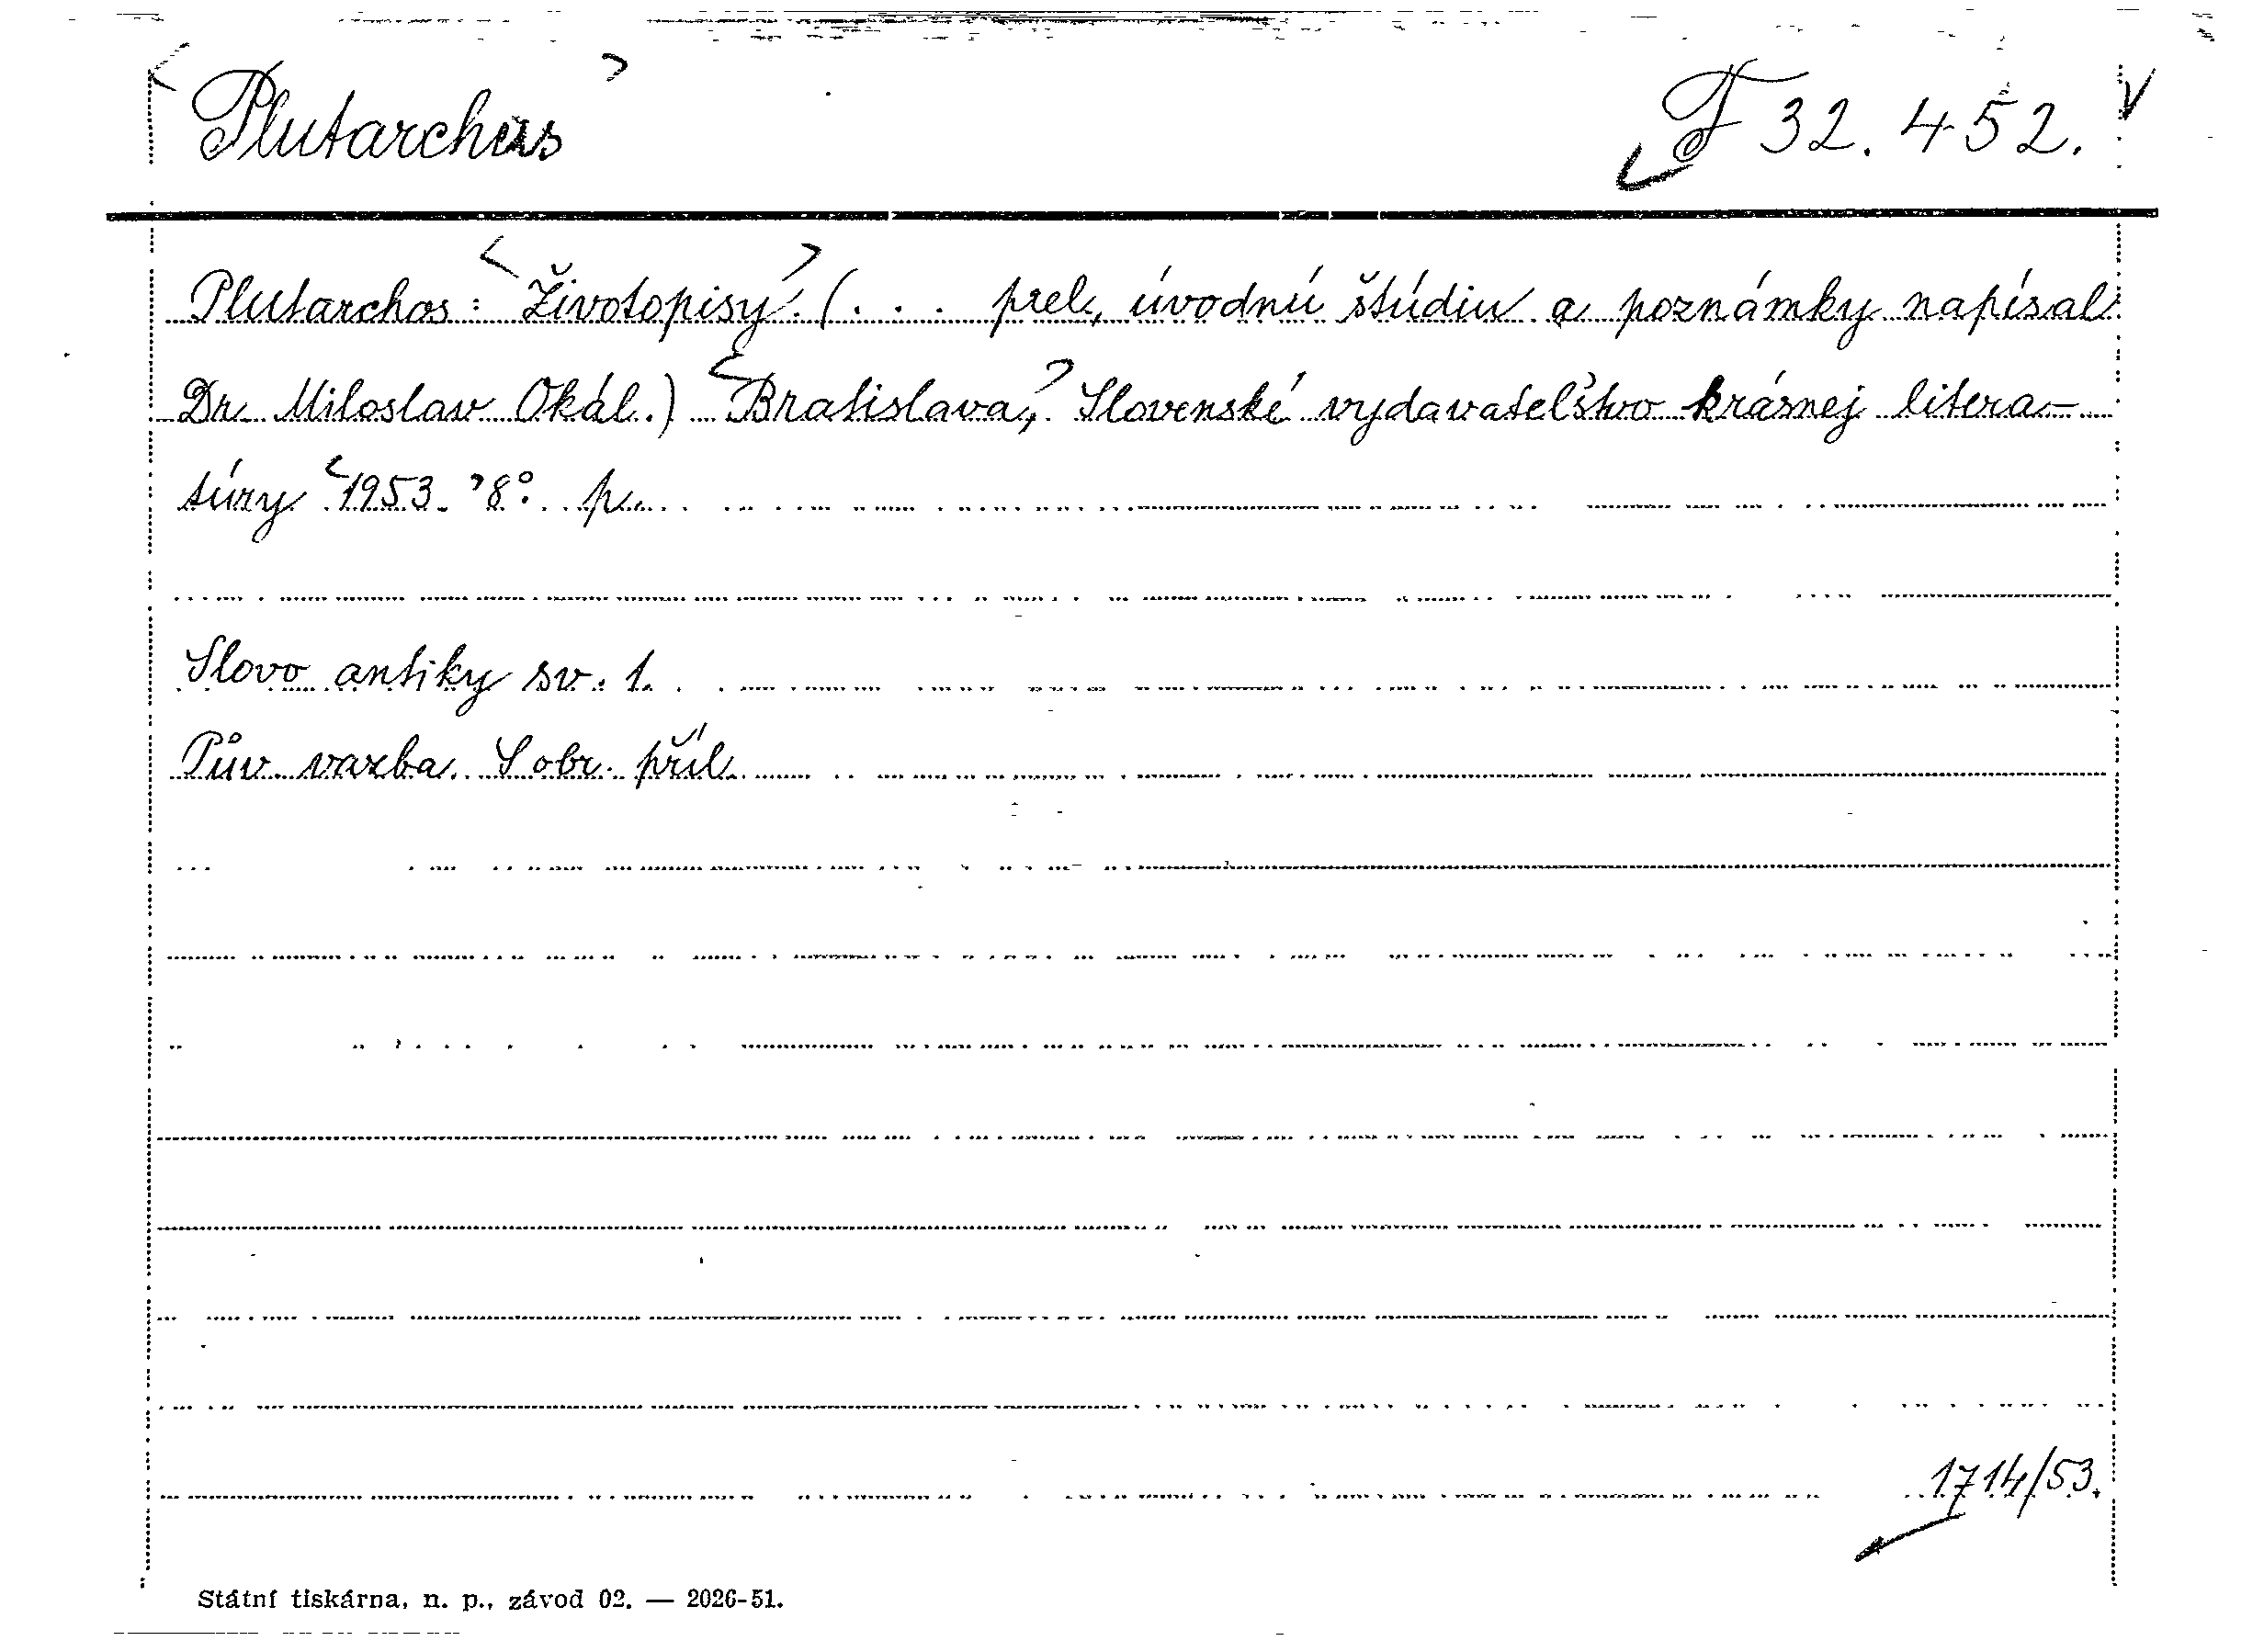 <Plutarchus> F 32.452.
Plutarchos: <Životopisy.> (. . . prel., úvodnú štúdiu a poznámky napísal
Dr. Miloslav Okál.) <Bratislava,> Slovenské vydavateľstvo krásnej litera-
túry <1953.> 8°. p.
Slovo antiky sv. 1.
Pův. vazba. S obr. příl.
1714/53.
Státní tiskárna, n. p., závod 02. — 2026-51.